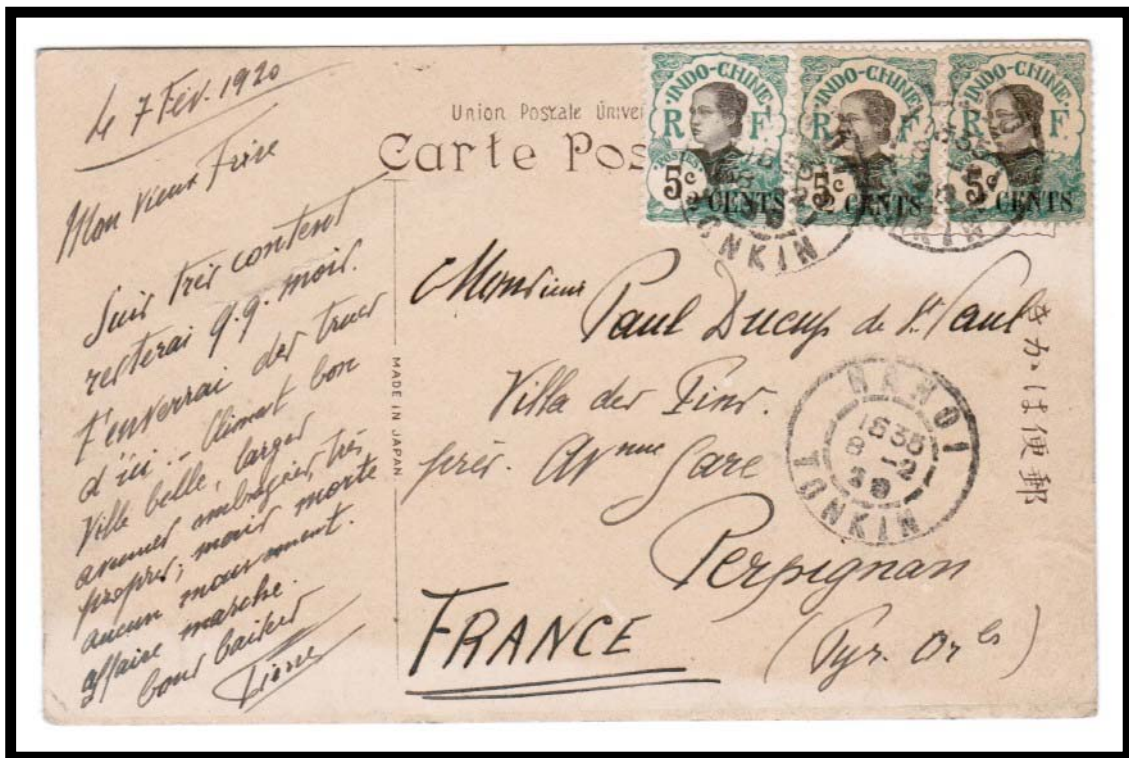 Le 7 Fév. 1920
Mon vieux Frère
Suis très content
resterai q.q. mois.
t'enverrai des trucs
d'ici. - Climat bon
Ville belle, larges
avenues ombragées, très
propres; mais morte
aucun mouvement.
affaire marche.
bons baisers
Pierre
Union Postale Univer
Carte Pos
MADE IN JAPAN
INDO-CHINE
R F
POSTES
5c
2 CENTS
INDO-CHINE
R F
POSTES
5c
2 CENTS
INDO-CHINE
R F
5c
CENTS
TONKIN
Monsieur
Paul Ducup de St Paul
Villa des Pins.
près. Avnue Gare
Perpignan
(Pyr. Or les)
FRANCE
HANOI
1635
8 -2
TONKIN
きかは便郵